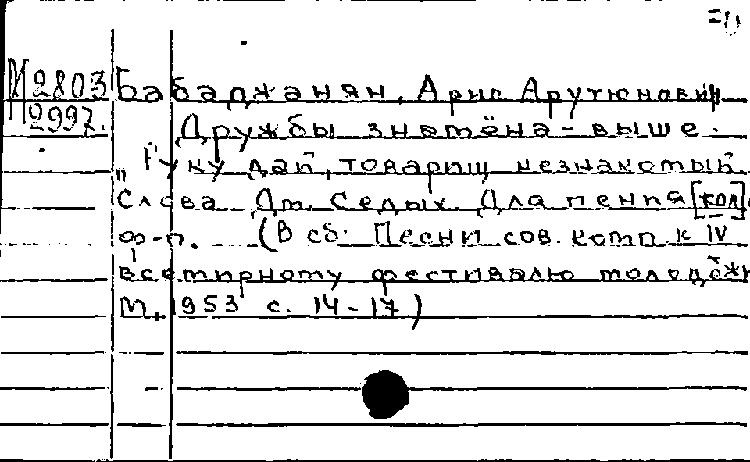 М 2803 Бабаджанян, Арно Арутюнович
2997. Дружбы знамёна - выше.
„Руку дай, товарищ незнакомый.
Слова Дм. Седых. Для пения [хол]
ф-п. (В сб: Песни сов. комп. к IV
всемирному фестивалю молодёжи
М, 1953 с. 14-17)